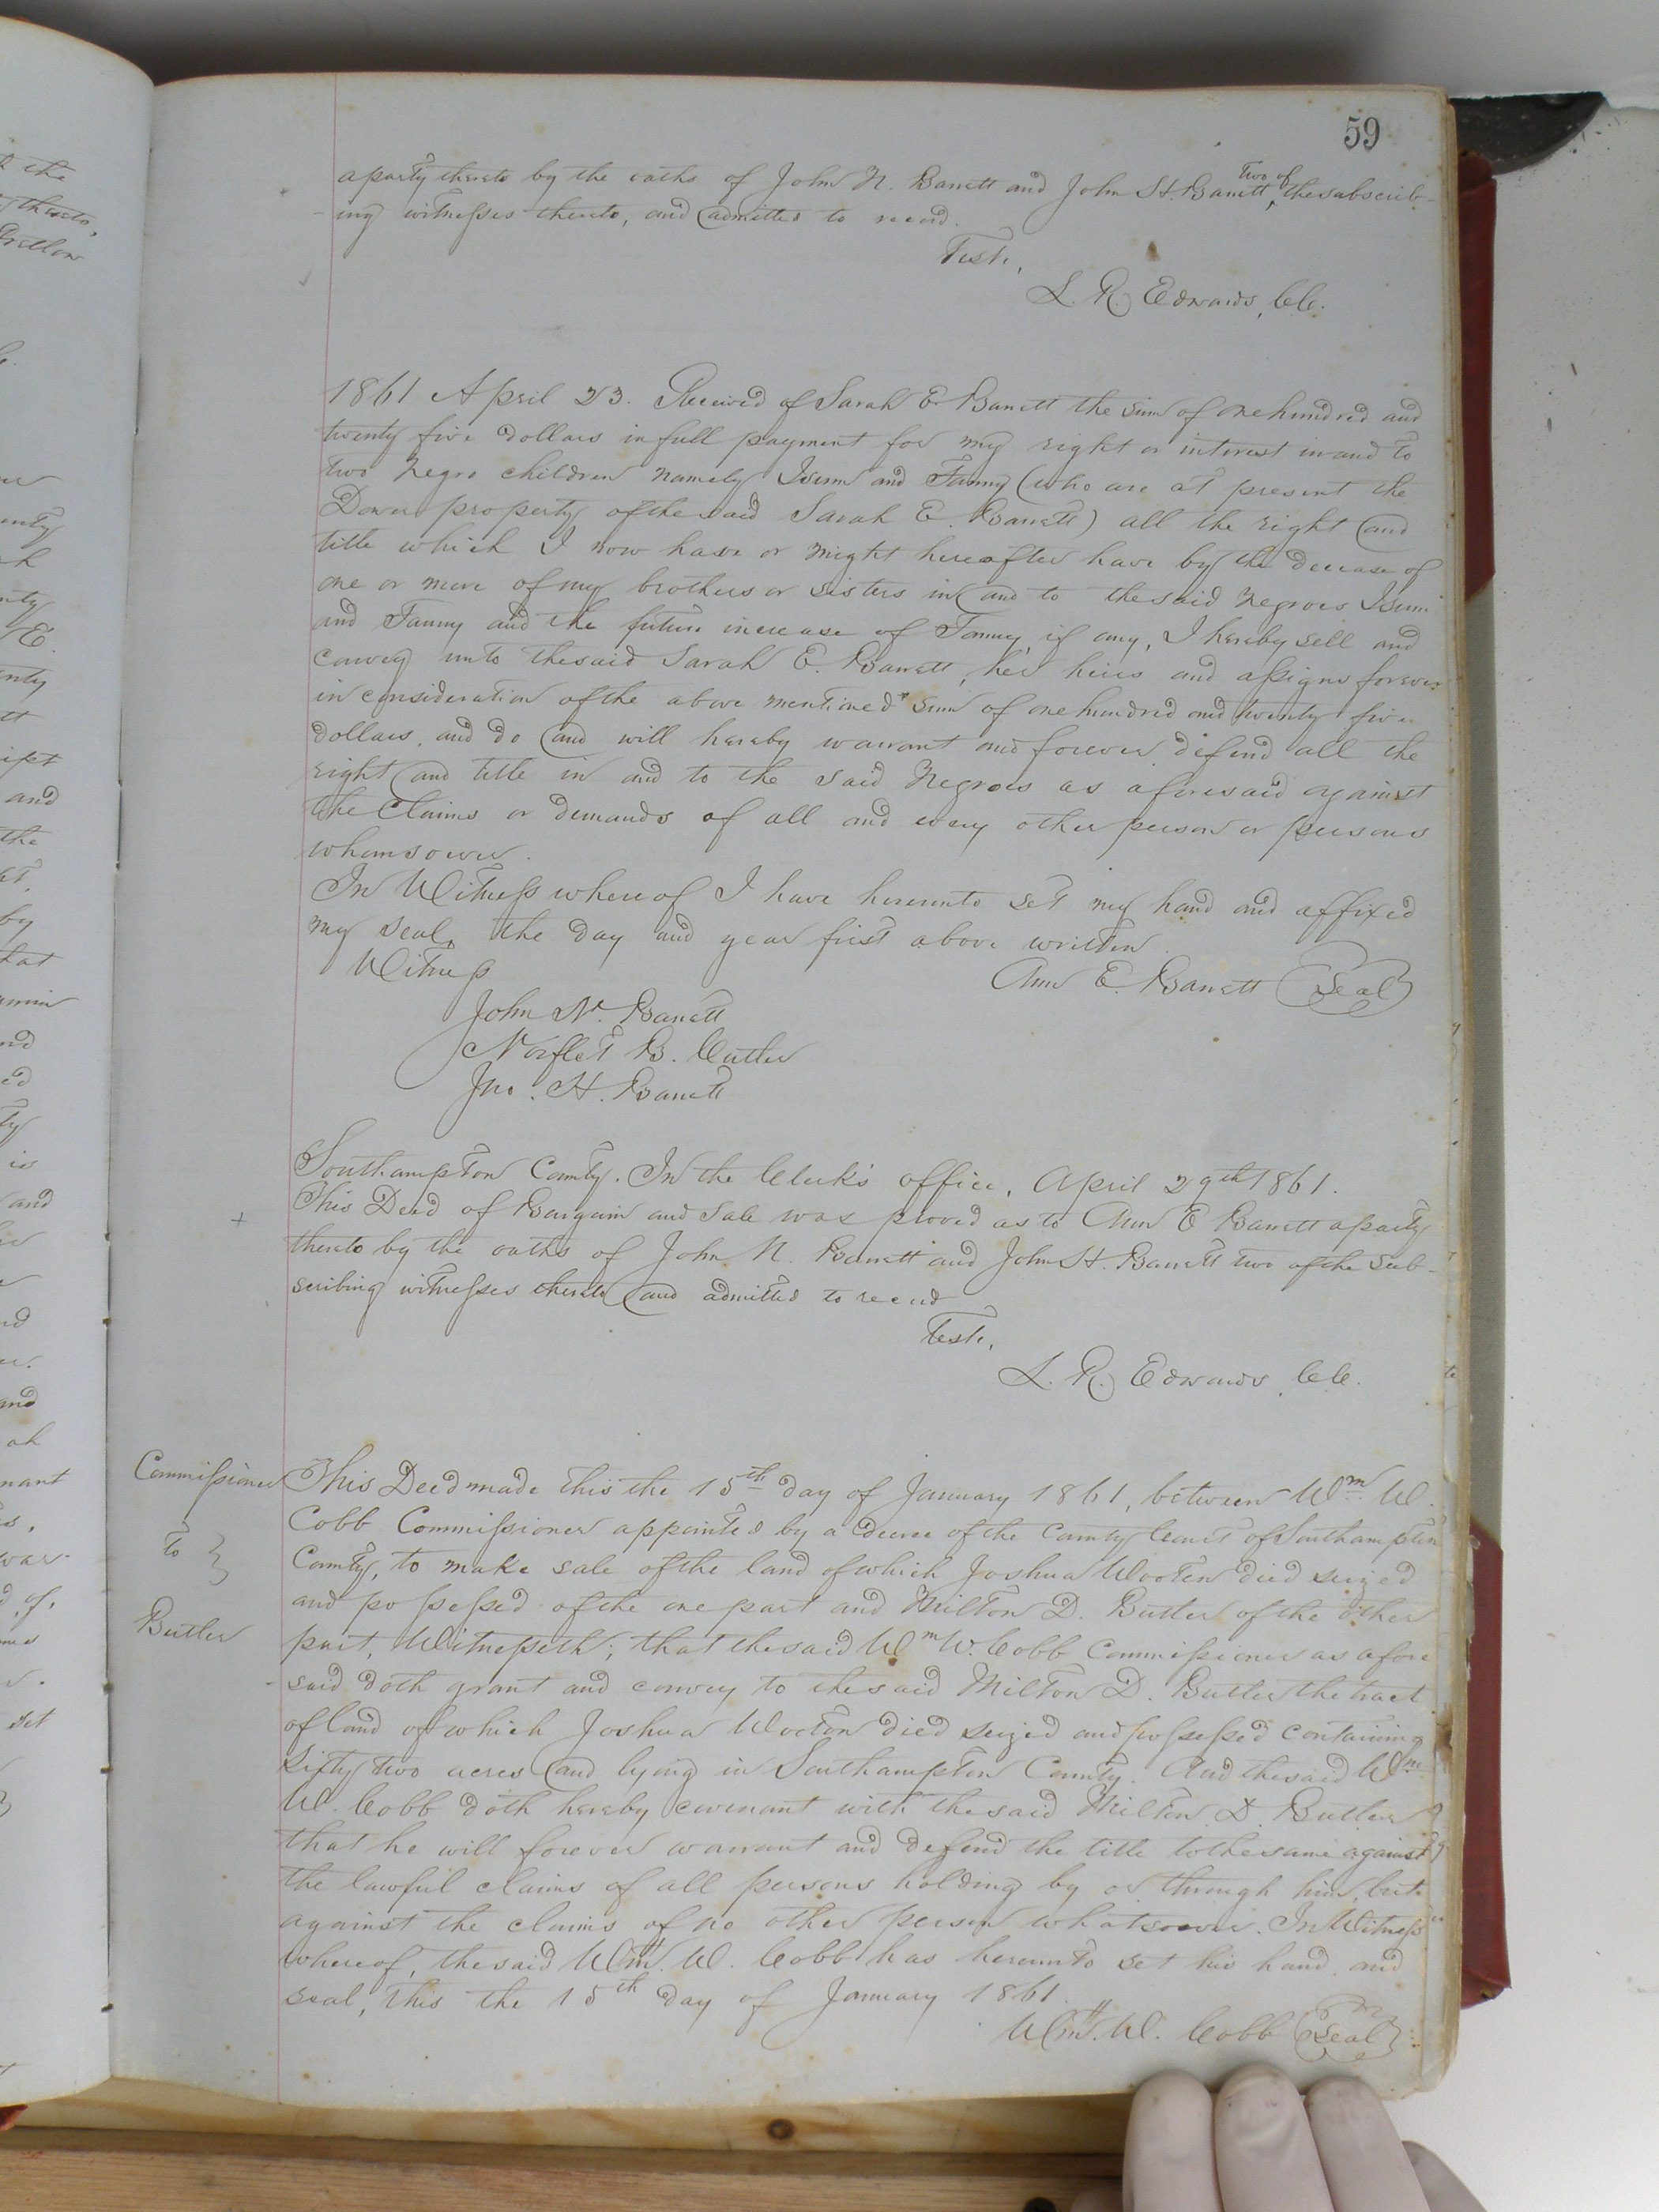 59
a party thereto by the oaths of John N. Barrett and John H. Barrett, two of the subscrib-
ing witnesses thereto, and admitted to record.
Teste,
L. R. Edwards, CC.
1861 April 23. Received of Sarah E. Barrett the sum of one hundred and
twenty five dollars in full payment for my right or interest in and to
two Negro children namely Isum and Fanny (who are at present the
Dower property of the said Sarah E. Barrett) all the right and
title which I now have or might hereafter have by the decease of
one or more of my brothers or sisters in and to the said Negroes Isum
and Fanny and the future increase of Fanny, if any, I hereby sell and
convey unto the said Sarah E. Barrett, her heirs and assigns forever
in consideration of the above mentioned sum of one hundred and twenty five
dollars, and do and will hereby warrant and forever defend all the
right and title in and to the said Negroes as aforesaid against
the Claims or demands of all and every other person or persons
whomsoever.
In Witness whereof I have hereunto set my hand and affixed
my seal, the day and year first above written.
Witness
Ann E. Barrett Seal
John N. Barrett
Norflet B. Cutler
Jno. H. Barrett
Southampton County. In the Clerk's office, April 29th 1861.
This Deed of Bargain and Sale was proved as to Ann E Barrett a party
thereto by the oaths of John N. Barrett and John H. Barrett two of the sub-
scribing witnesses thereto and admitted to record
Teste,
L. R. Edwards, CC.
Commissioner
to
Butler
This Deed made this the 15th day of January 1861, between Wm W.
Cobb Commissioner appointed by a decree of the County Court of Southampton
County, to make sale of the land of which Joshua Wooten died seized
and possessed of the one part and Milton D. Butler of the other
part, Witnesseth; that the said Wm W. Cobb Commissioner as afore
said doth grant and convey to the said Milton D. Butler the tract
of land of which Joshua Wooten died seized and possessed containing
sixty two acres and lying in Southampton County. And the said Wm
W. Cobb doth hereby covenant with the said Milton D. Butler
that he will forever warrant and defend the title to the same against
the lawful claims of all persons holding by or through him, but
against the claims of no other person whatsoever. In Witness
whereof, the said Wm. W. Cobb has hereunto set his hand and
seal, this the 15th day of January 1861.
Wm. W. Cobb Seal